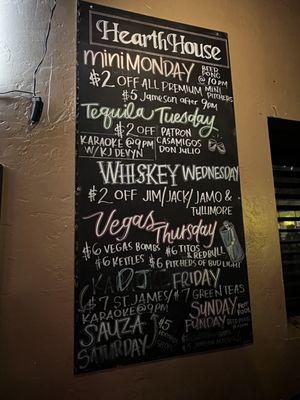 HearthHouse
mini MONDAY
BEER PONG @ 10PM
$2 OFF ALL PREMIUM MINI PITCHERS
$5 Jameson after 9PM
Tequila Tuesday
$2 OFF PATRON
KARAOKE @ 9PM CASAMIGOS
W/ KJ DEVYN DON JULIO
WHISKEY WEDNESDAY
$2 OFF JIM/JACK/JAMO &
TULLIMORE
Vegas Thursday
$6 VEGAS BOMBS $6 TITOS & REDBULL
$6 KETTLES $6 PITCHERS OF BUD LIGHT
FRIDAY
$7 ST. JAMES/$7 GREEN TEAS
KARAOKE @ 9PM
SUNDAY
FUNDAY
SAUZA $5
SATURDAY